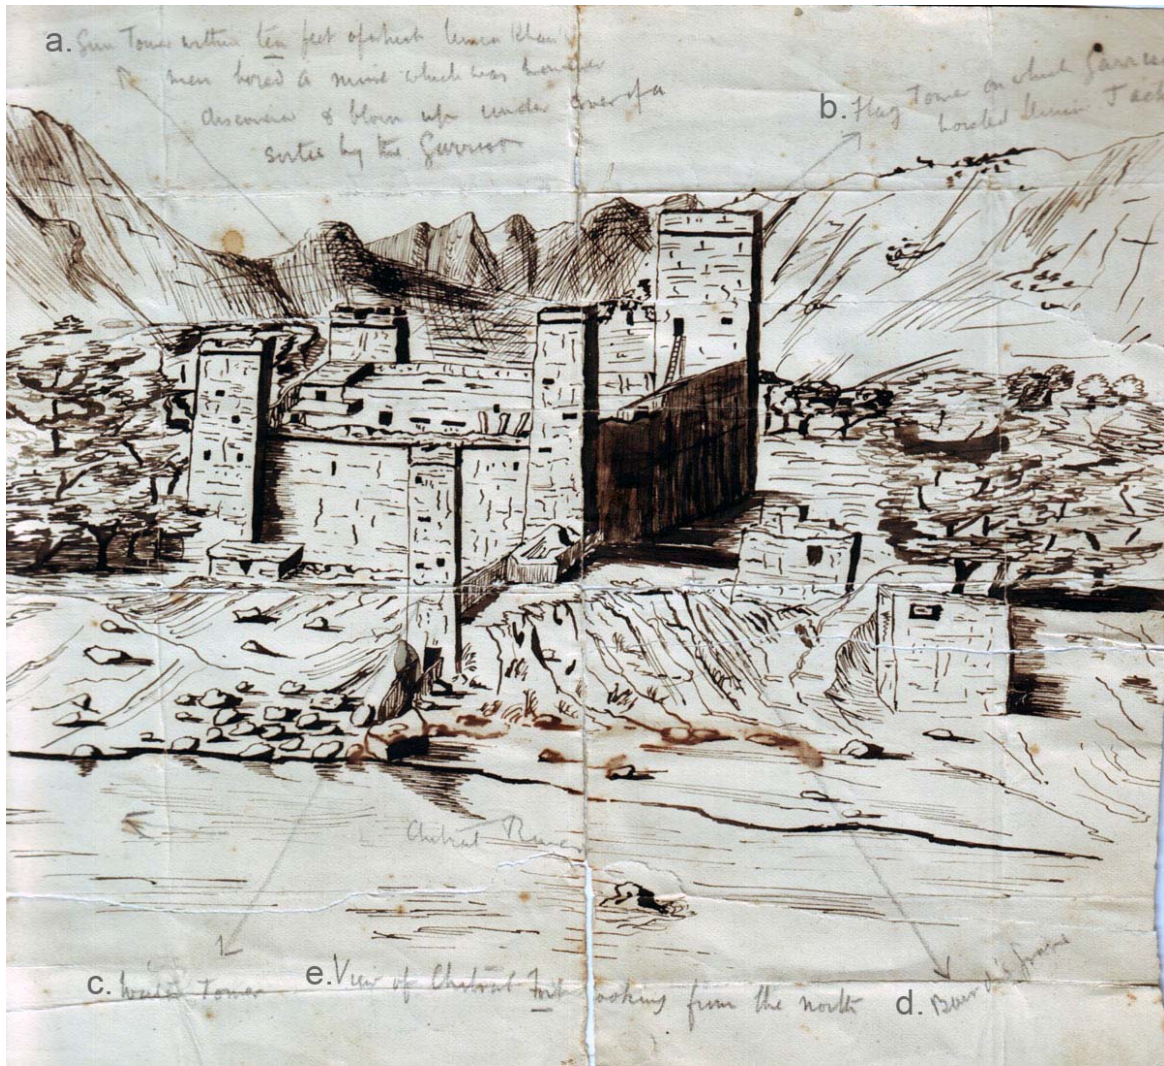 a. Gun Tower within ten feet of which Umra Khan's
men bored a mine which was however
discovered & blown up under cover of a
sortie by the Garrison
b. Flag Tower on which Garrison
hoisted Union Jack
Chitral River
c. Water Tower
e. View of Chitral Fort looking from the north
d. Baird's grave